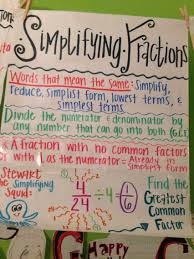 Simplifying Fractions
Words that mean the same: Simplify,
reduce, simplist form, lowest terms, &
simplest terms.
Divide the numerator & denominator by
any number that can go into both
A fraction with no common factors
or with 1 as the numerator = Already in
simplist form
Stewart
the Simplifying
Squid:
4/24 ÷4 ÷4 1/6
Find the
Greatest
Common
Factor
Happy